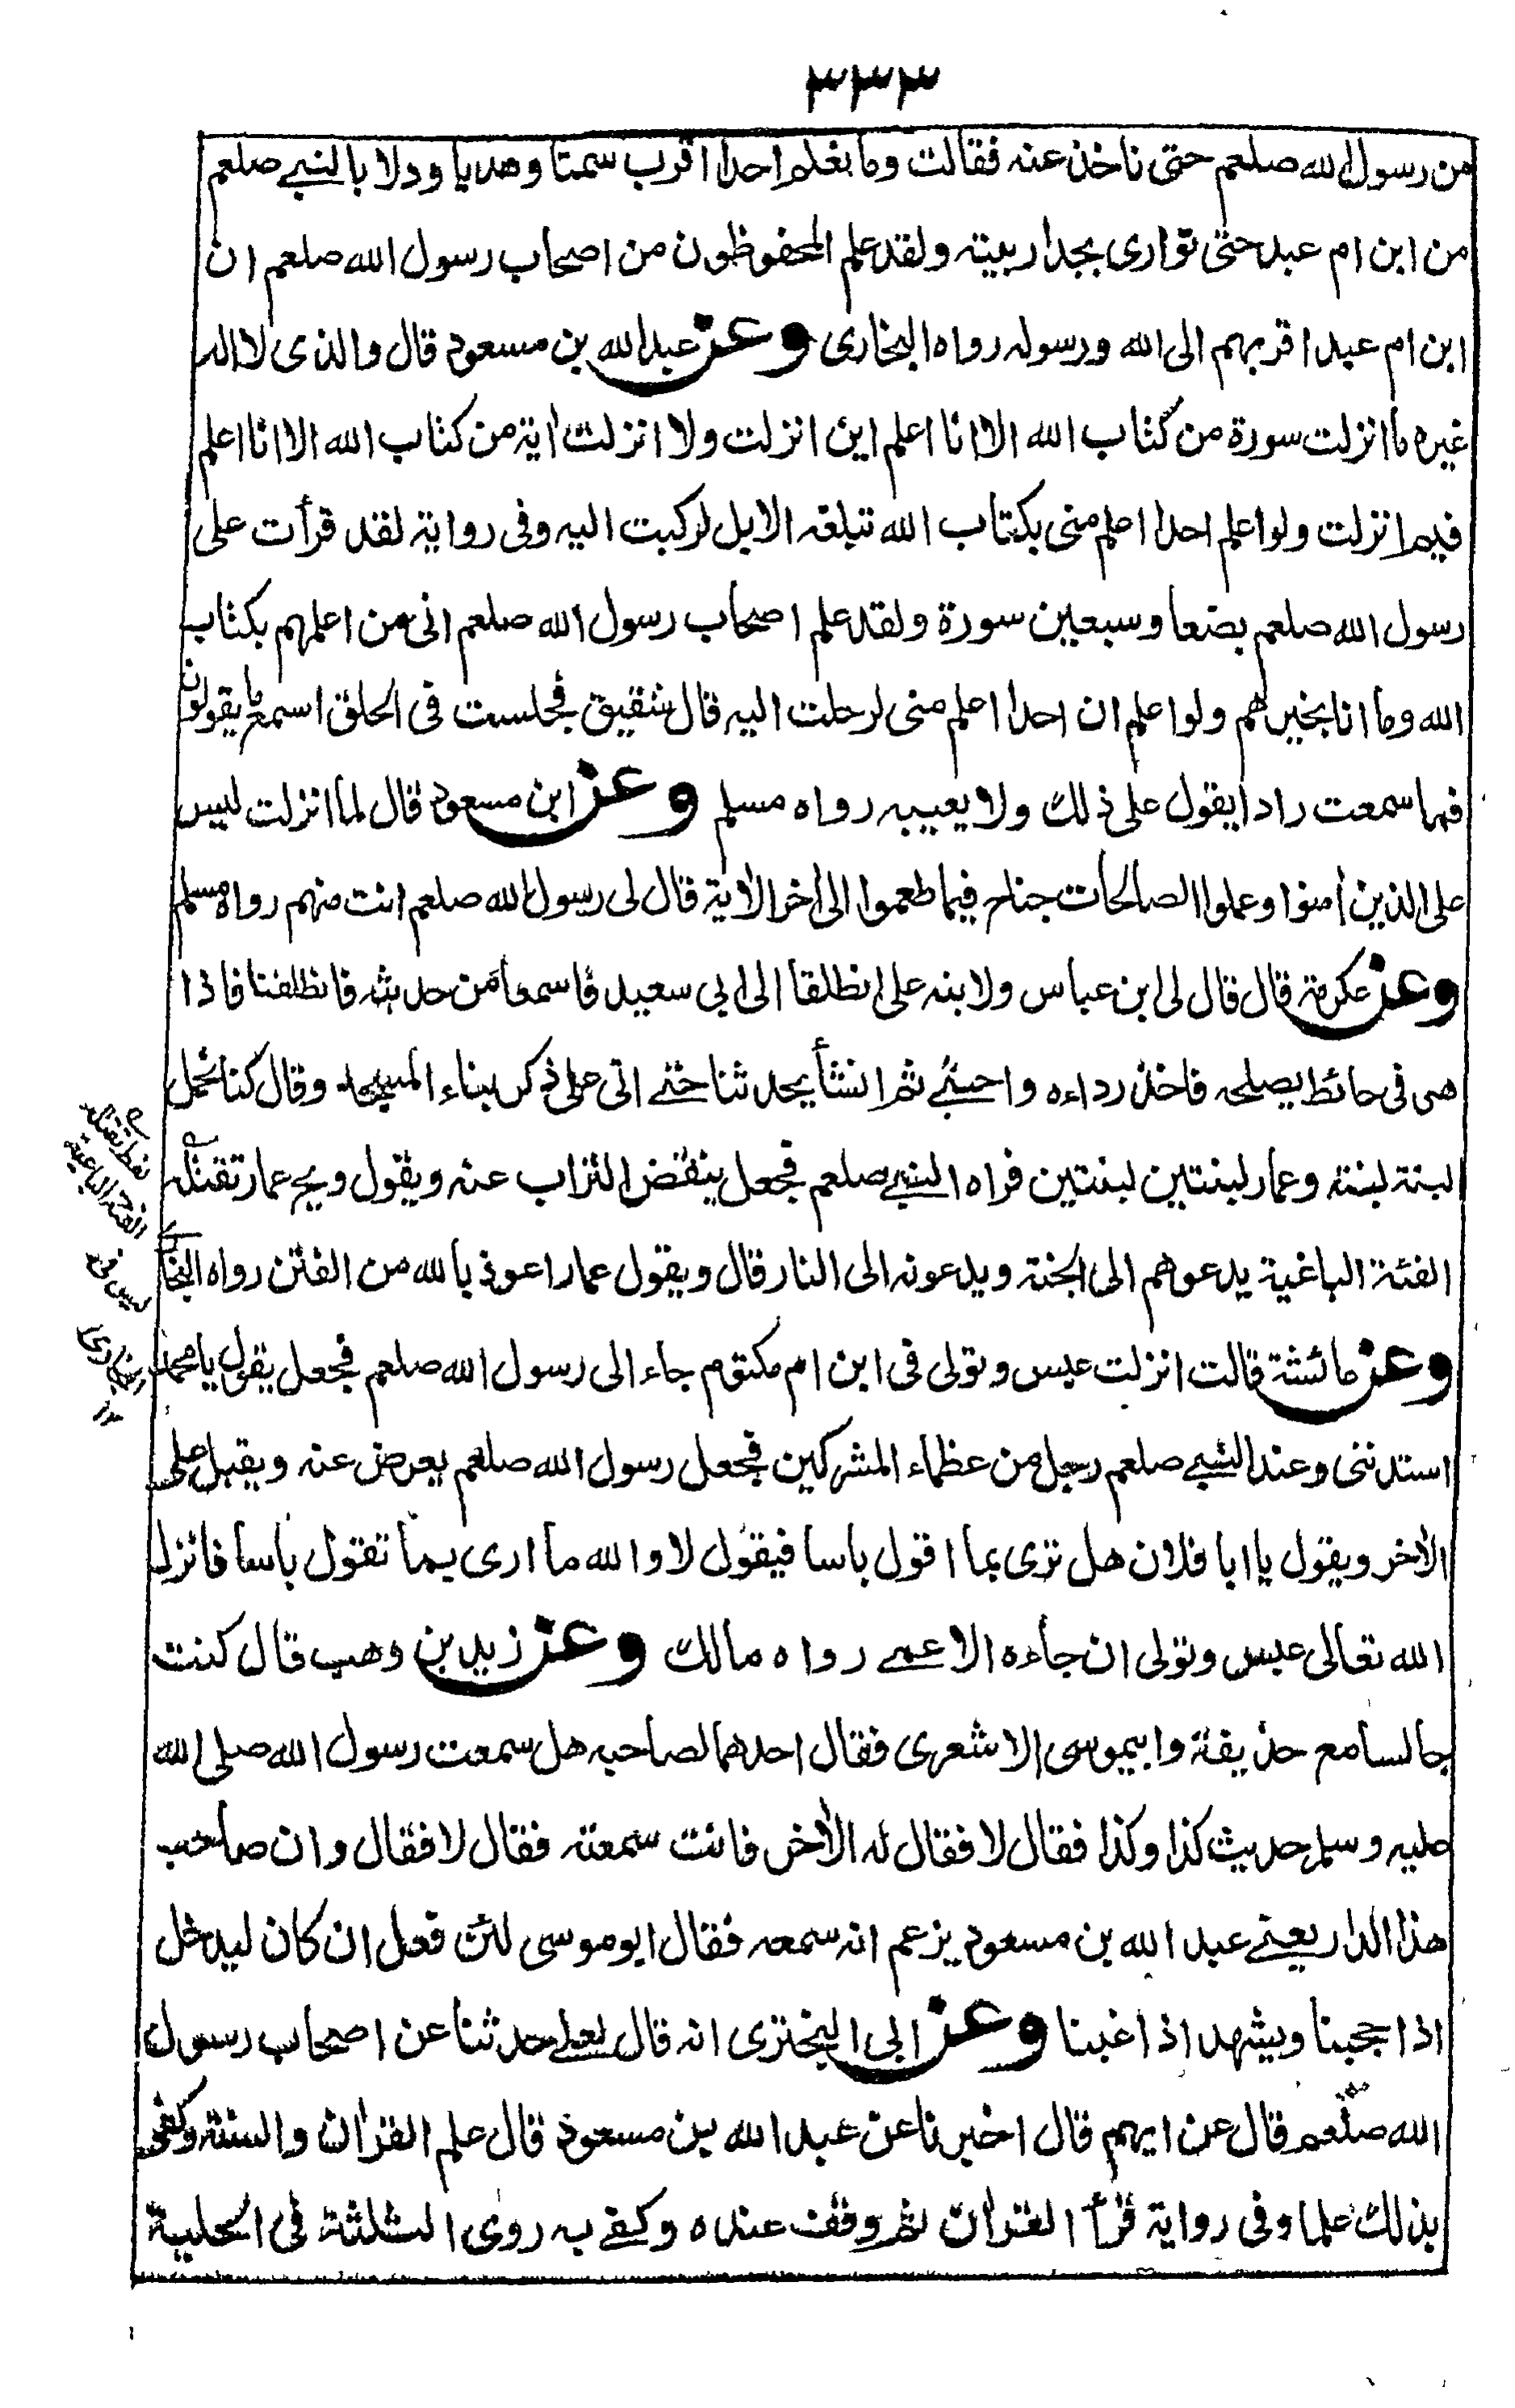 ٣٣٣
من رسول الله صلعم حتى ناخذ عنه فقالت وما نعلم احدا اقرب سمتا وهديا ودلا بالنبي صلعم
من ابن ام عبد حتى توارى بجدار بيته ولقد علم المحفوظون من اصحاب رسول الله صلعم ان
ابن ام عبد اقربهم الى الله ورسوله رواه البخارى وعن عبد الله بن مسعود قال والذى لا اله
غيره ما انزلت سورة من كتاب الله الا انا اعلم اين انزلت ولا انزلت اٰية من كتاب الله الا انا اعلم
فيم انزلت ولو اعلم احدا اعلم منى بكتاب الله تبلغه الابل لركبت اليه وفى رواية لقد قرأت على
رسول الله صلعم بضعا وسبعين سورة ولقد علم اصحاب رسول الله صلعم انى من اعلمهم بكتاب
الله وما انا بخيرهم ولو اعلم ان احدا اعلم منى لرحلت اليه قال شقيق فجلست فى الحلق اسمع ما يقولون
فما سمعت رادا يقول على ذلك ولا يعيبه رواه مسلم وعن ابن مسعود قال لما انزلت ليس
على الذين اٰمنوا وعملوا الصالحات جناح فيما طعموا الى اٰخر الاٰية قال لى رسول الله صلعم انت منهم رواه مسلم
وعن عكرمة قال قال لى ابن عباس ولابنه على انطلقا الى ابى سعيد فاسمعا من حديثه فانطلقنا فاذا
هى فى حائط يصلحه فاخذ رداءه واحتبى ثم انشأ يحدثنا حتى اتى على ذكر بناء المسجد وقال كنا نحمل
لبنة لبنة وعمار لبنتين لبنتين فراه النبي صلعم فجعل ينفض التراب عنه ويقول ويح عمار تقتله
الفئة الباغية يدعوهم الى الجنة ويدعونه الى النار قال ويقول عمار اعوذ بالله من الفتن رواه البخارى
وعن عائشة قالت انزلت عبس وتولى فى ابن ام مكتوم جاء الى رسول الله صلعم فجعل يقول يا محمد
استدننى وعند النبي صلعم رجل من عظماء المشركين فجعل رسول الله صلعم يعرض عنه ويقبل على
الاٰخر ويقول يا ابا فلان هل ترى بما اقول باسا فيقول لا والله ما ارى بما تقول باسا فانزل
الله تعالى عبس وتولى ان جاءه الاعمى رواه مالك وعن زيد بن وهب قال كنت
جالسا مع حذيفة وابيموسى الاشعرى فقال احدهما لصاحبه هل سمعت رسول الله صلى الله
عليه وسلم حديث كذا وكذا فقال لا فقال له الاٰخر فانت سمعته فقال لا فقال وان صاحب
هذا الدار يعنى عبد الله بن مسعود يزعم انه سمعه فقال ابو موسى لئن فعل ان كان ليدخل
اذا حجبنا ويشهد اذا غبنا وعن ابى البخترى انه قال لعلى حدثنا عن اصحاب رسول
الله صلعم قال عن ايهم قال اخبرنا عن عبد الله بن مسعود قال علم القراٰن والسنة وكفى
بذلك علما وفى رواية قرأ القراٰن ثم وقف عنده وكفى به روى الثلثة فى الحلية
لفظ تقتله
الفئة الباغية
ليس فى
البخارى
١٢